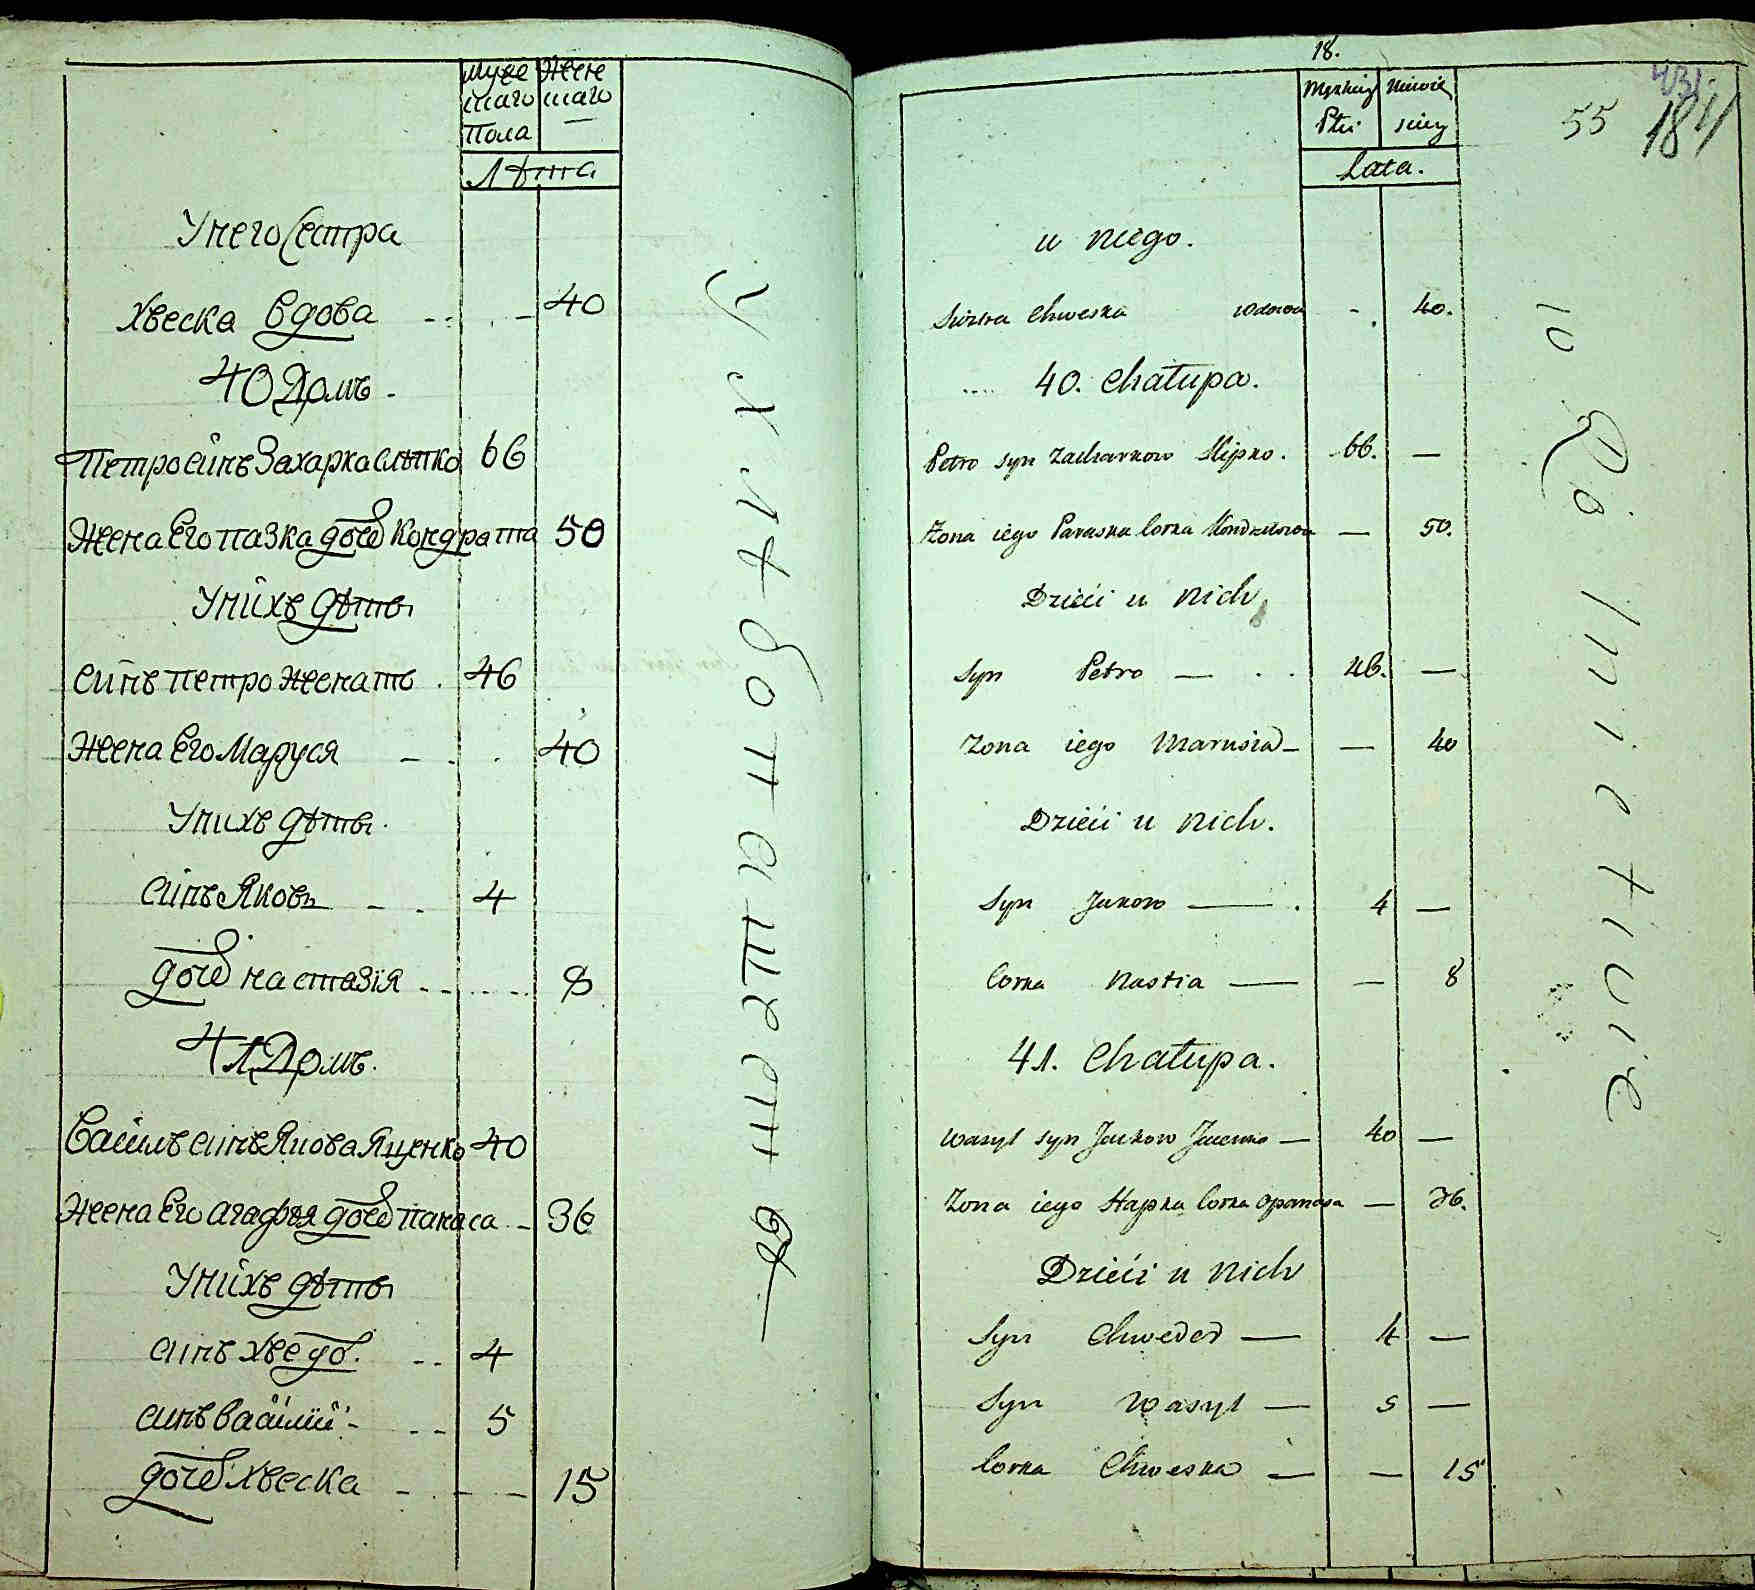 муже
скаго
Пола
Жен
скаго
Лѣта
У него Сестра
Хвеска вдова 40
40 Домъ
Петро синъ Захарка Слѣпко 66
Жена Его Пазка дочь Кондрата 50
У нихъ дѣти
Синъ Петро женатъ 46
Жена Его Маруся 40
У нихъ дѣти
Синъ Яковъ 4
дочь настазія 8
41 Домъ
Василь синъ Якова Яценко 40
Жена Его Агафия дочь Панаса 36
У нихъ дѣти
Синъ Хведо. 4
Синъ Василій 5
дочь Хвеска 15
18.
431.
55 184
Męzkiey
Płci
Niewie
sciey
Lata.
u niego.
Siostra Chweska wdowa - 40.
40. Chałupa.
Petro syn Zacharkow Slipko. 66. —
Zona iego Paraska Corka Kondratowa — 50.
Dzieci u nich
Syn Petro — 46. —
Zona iego Marusia — — 40
Dzieci u nich.
Syn Jakow — 4 —
Corka Nastia — — 8
41. Chałupa.
Wasyl syn Jakow Jacenko — 40 —
Zona iego Hapka Corka Opanasa — 36.
Dzieci u nich
Syn Chweder — 4 —
Syn Wasyl — 5 —
Corka Chweska — — 15